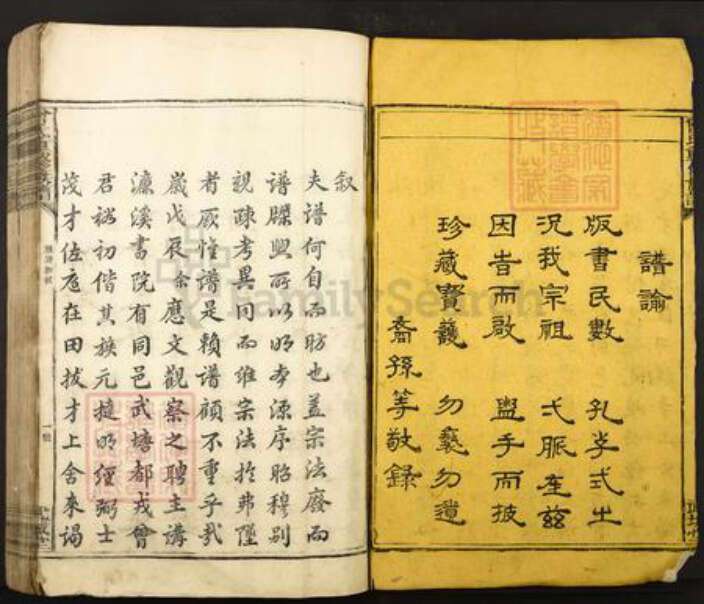 譜論
版書民數 孔子式之
況我宗祖 弌脈在兹
因告而啟 盥手而披
珍藏寶護 勿褻勿遺
裔孫等敬錄
叙
夫譜何自而昉也蓋宗法廢而
譜牒興所以明本源序昭穆別
親疎考異同而維宗法於弗墜
者厥惟譜是賴譜顧不重乎哉
歲戊辰余應文觀察之聘主講
濂溪書院有同邑武塘都戎曾
君裕初偕其族元捷明經弼士
茂才佐庭在田拔才上舍來謁
FamilySearch